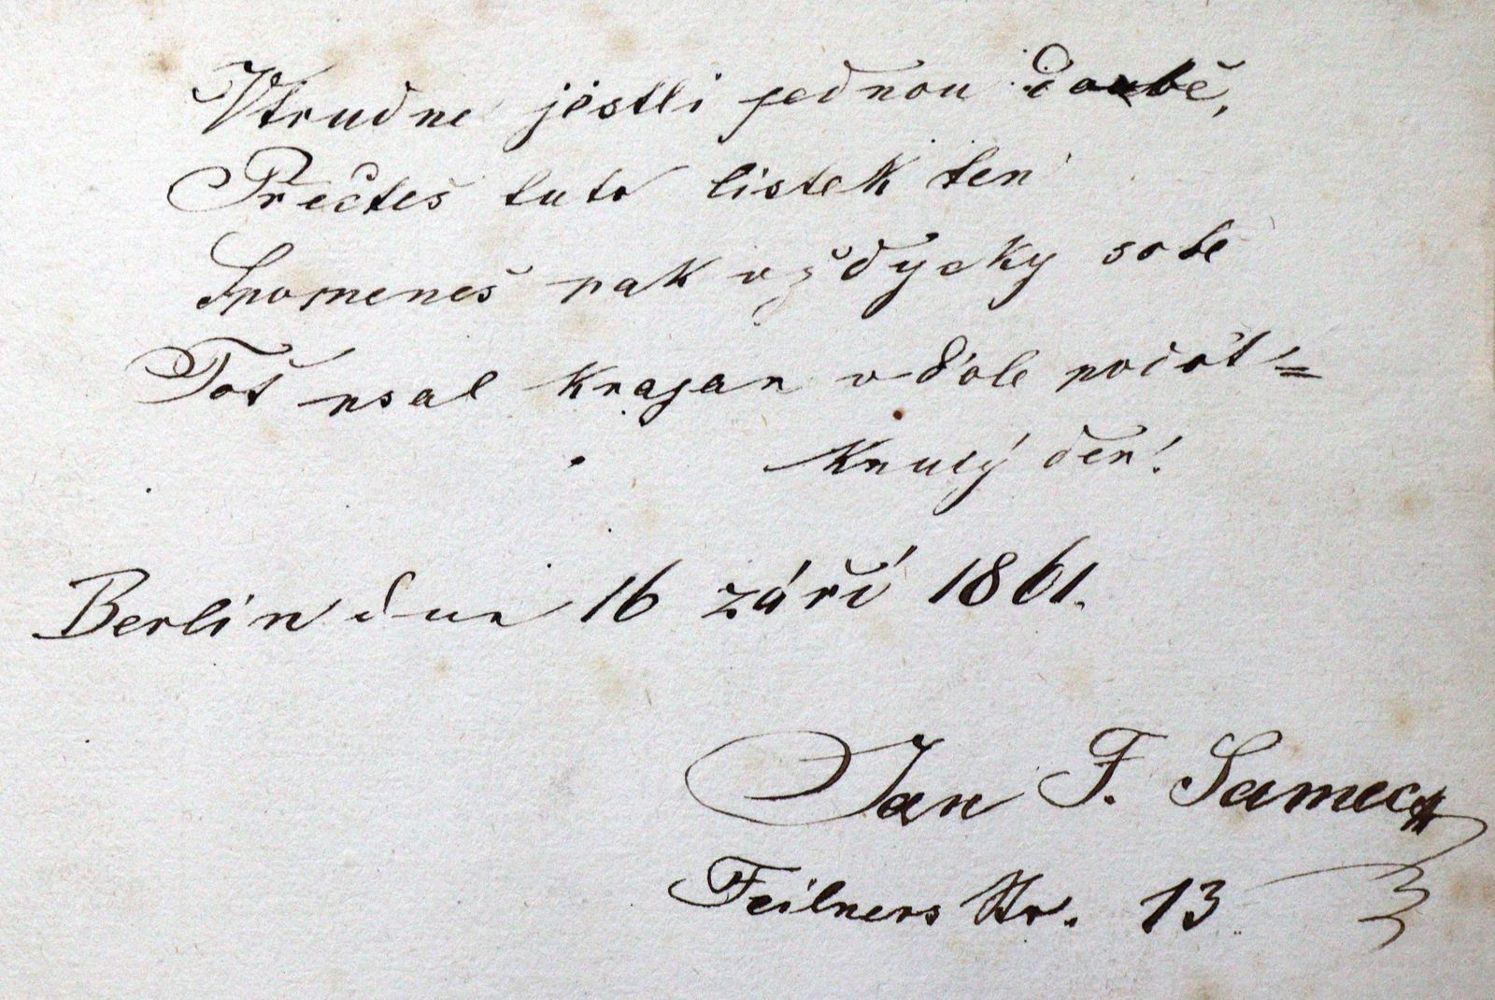 Vtrudne jestli jednou doubě,
Přečteš tuto listek ten
Spomeneš pak vždycky sobe
Toť psal krajan v dole počat=
Knulý den!
Berlin dne 16 září 1861.
Jan F. Samec
Feilners Str. 13